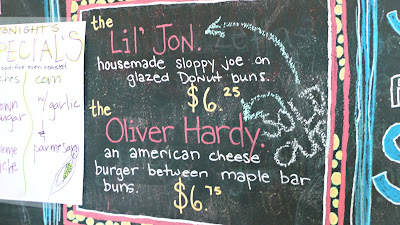 TONIGHT'S
SPECIALS
corn
w/ garlic
parmesan
the
Lil' Jon.
housemade sloppy joe on
glazed Donut buns.
$6.25
the
Oliver Hardy.
an american cheese
burger between maple bar
buns.
$6.75